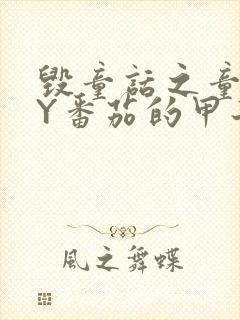 毁童话之童
Y番茄的甲
風之舞蝶